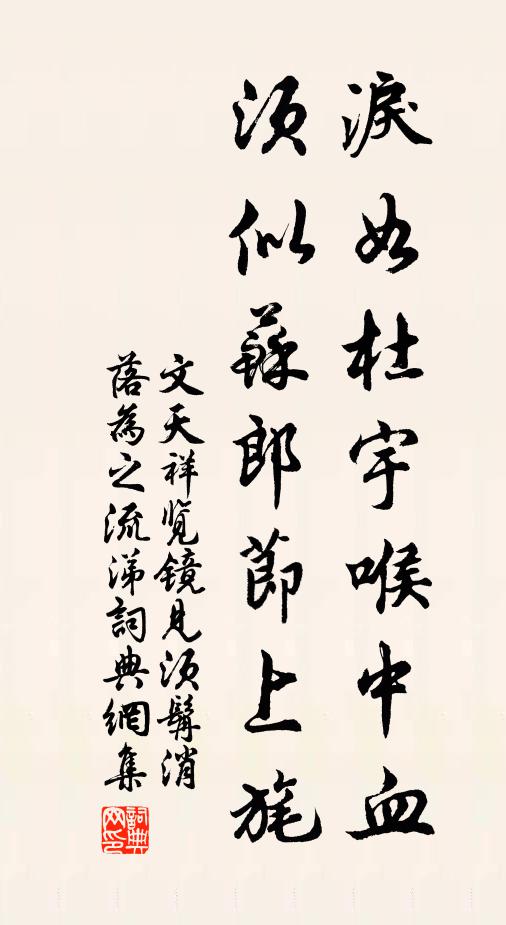 淚如杜宇喉中血
須似蘇郎節上旄
文天祥覽鏡見須髯消
落為之流涕詞典網集
詞典
网印